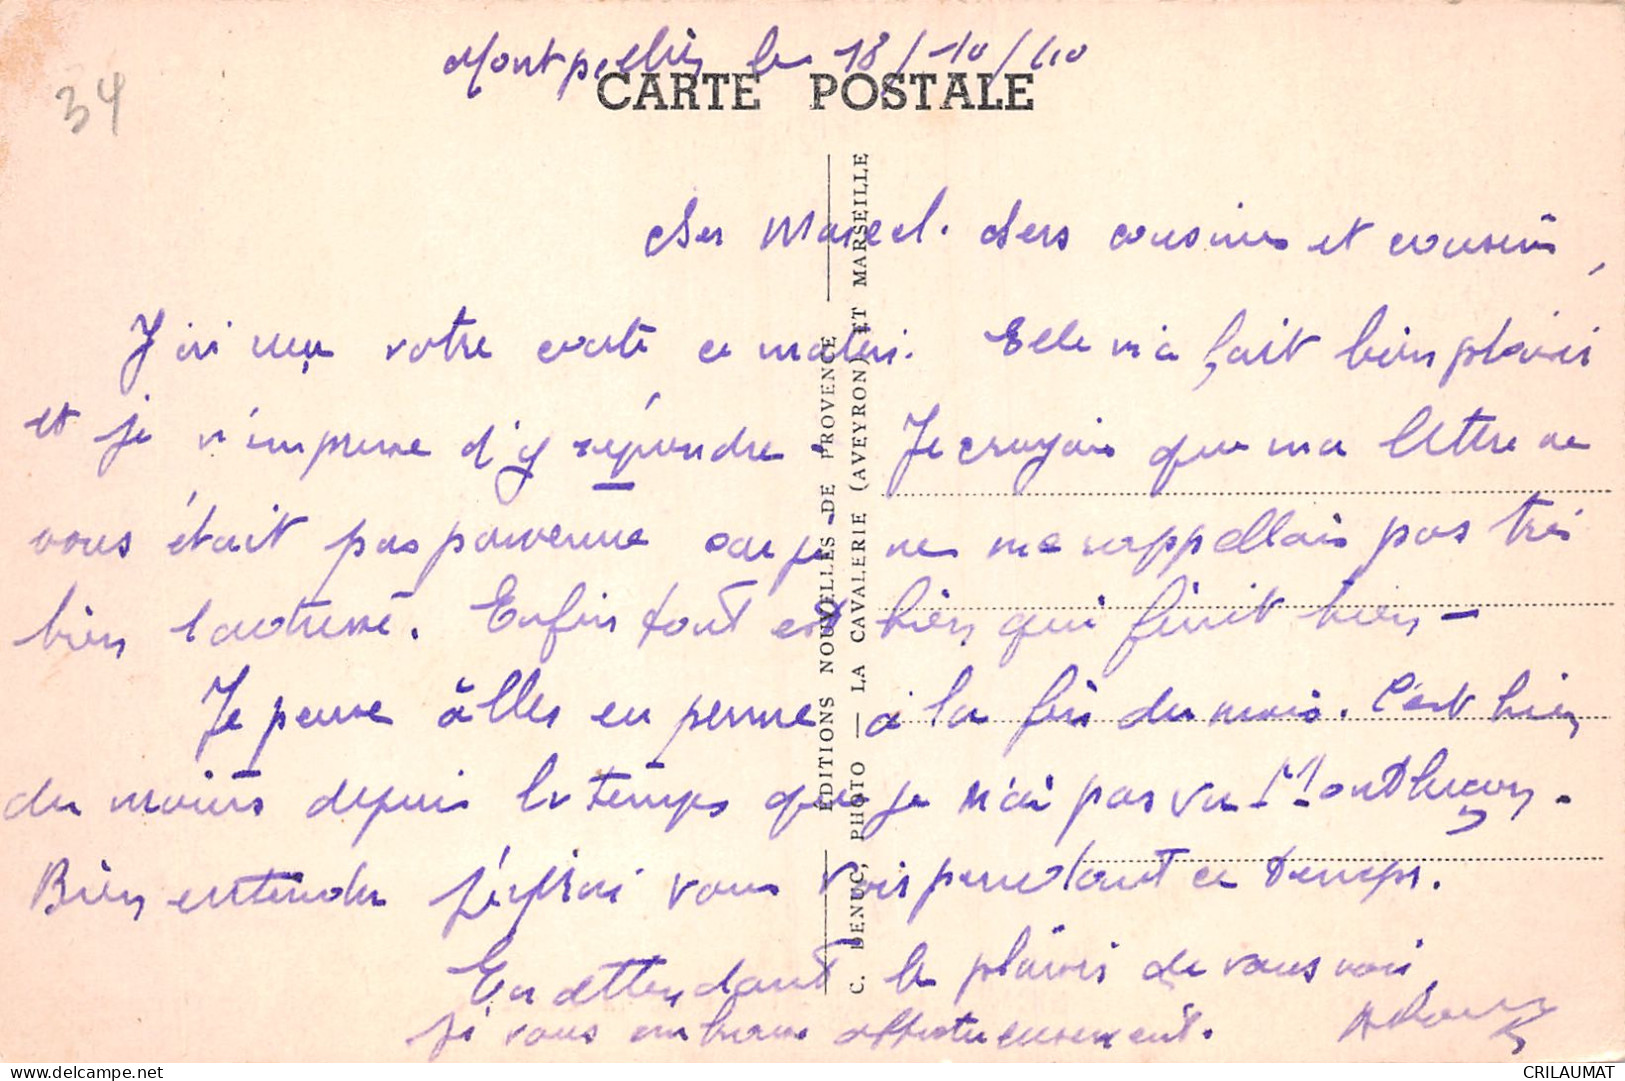 34
Montpellier le 18/10/40
CARTE POSTALE
Cher Marcel. Chers cousines et cousins,
J'ai reçu votre carte ce matin. Elle m'a fait bien plaisir
et je m'empresse d'y répondre. Je croyais que ma lettre ne
vous était pas parvenue car je ne me rappellais pas très
bien l'adresse. Enfin tout est bien qui finit bien -
Je pense âller en perme à la fin du mois. C'est bien
du moins depuis le temps que je n'ai pas vu Montluçon.
Bien entendu j'irai vous voir pendant ce temps.
En attendant le plaisir de vous voir,
je vous embrasse affectueusement.
EDITIONS NOUVELLES DE PROVENCE
C. DENUC, PHOTO — LA CAVALERIE (AVEYRON) ET MARSEILLE
CRILAUMAT